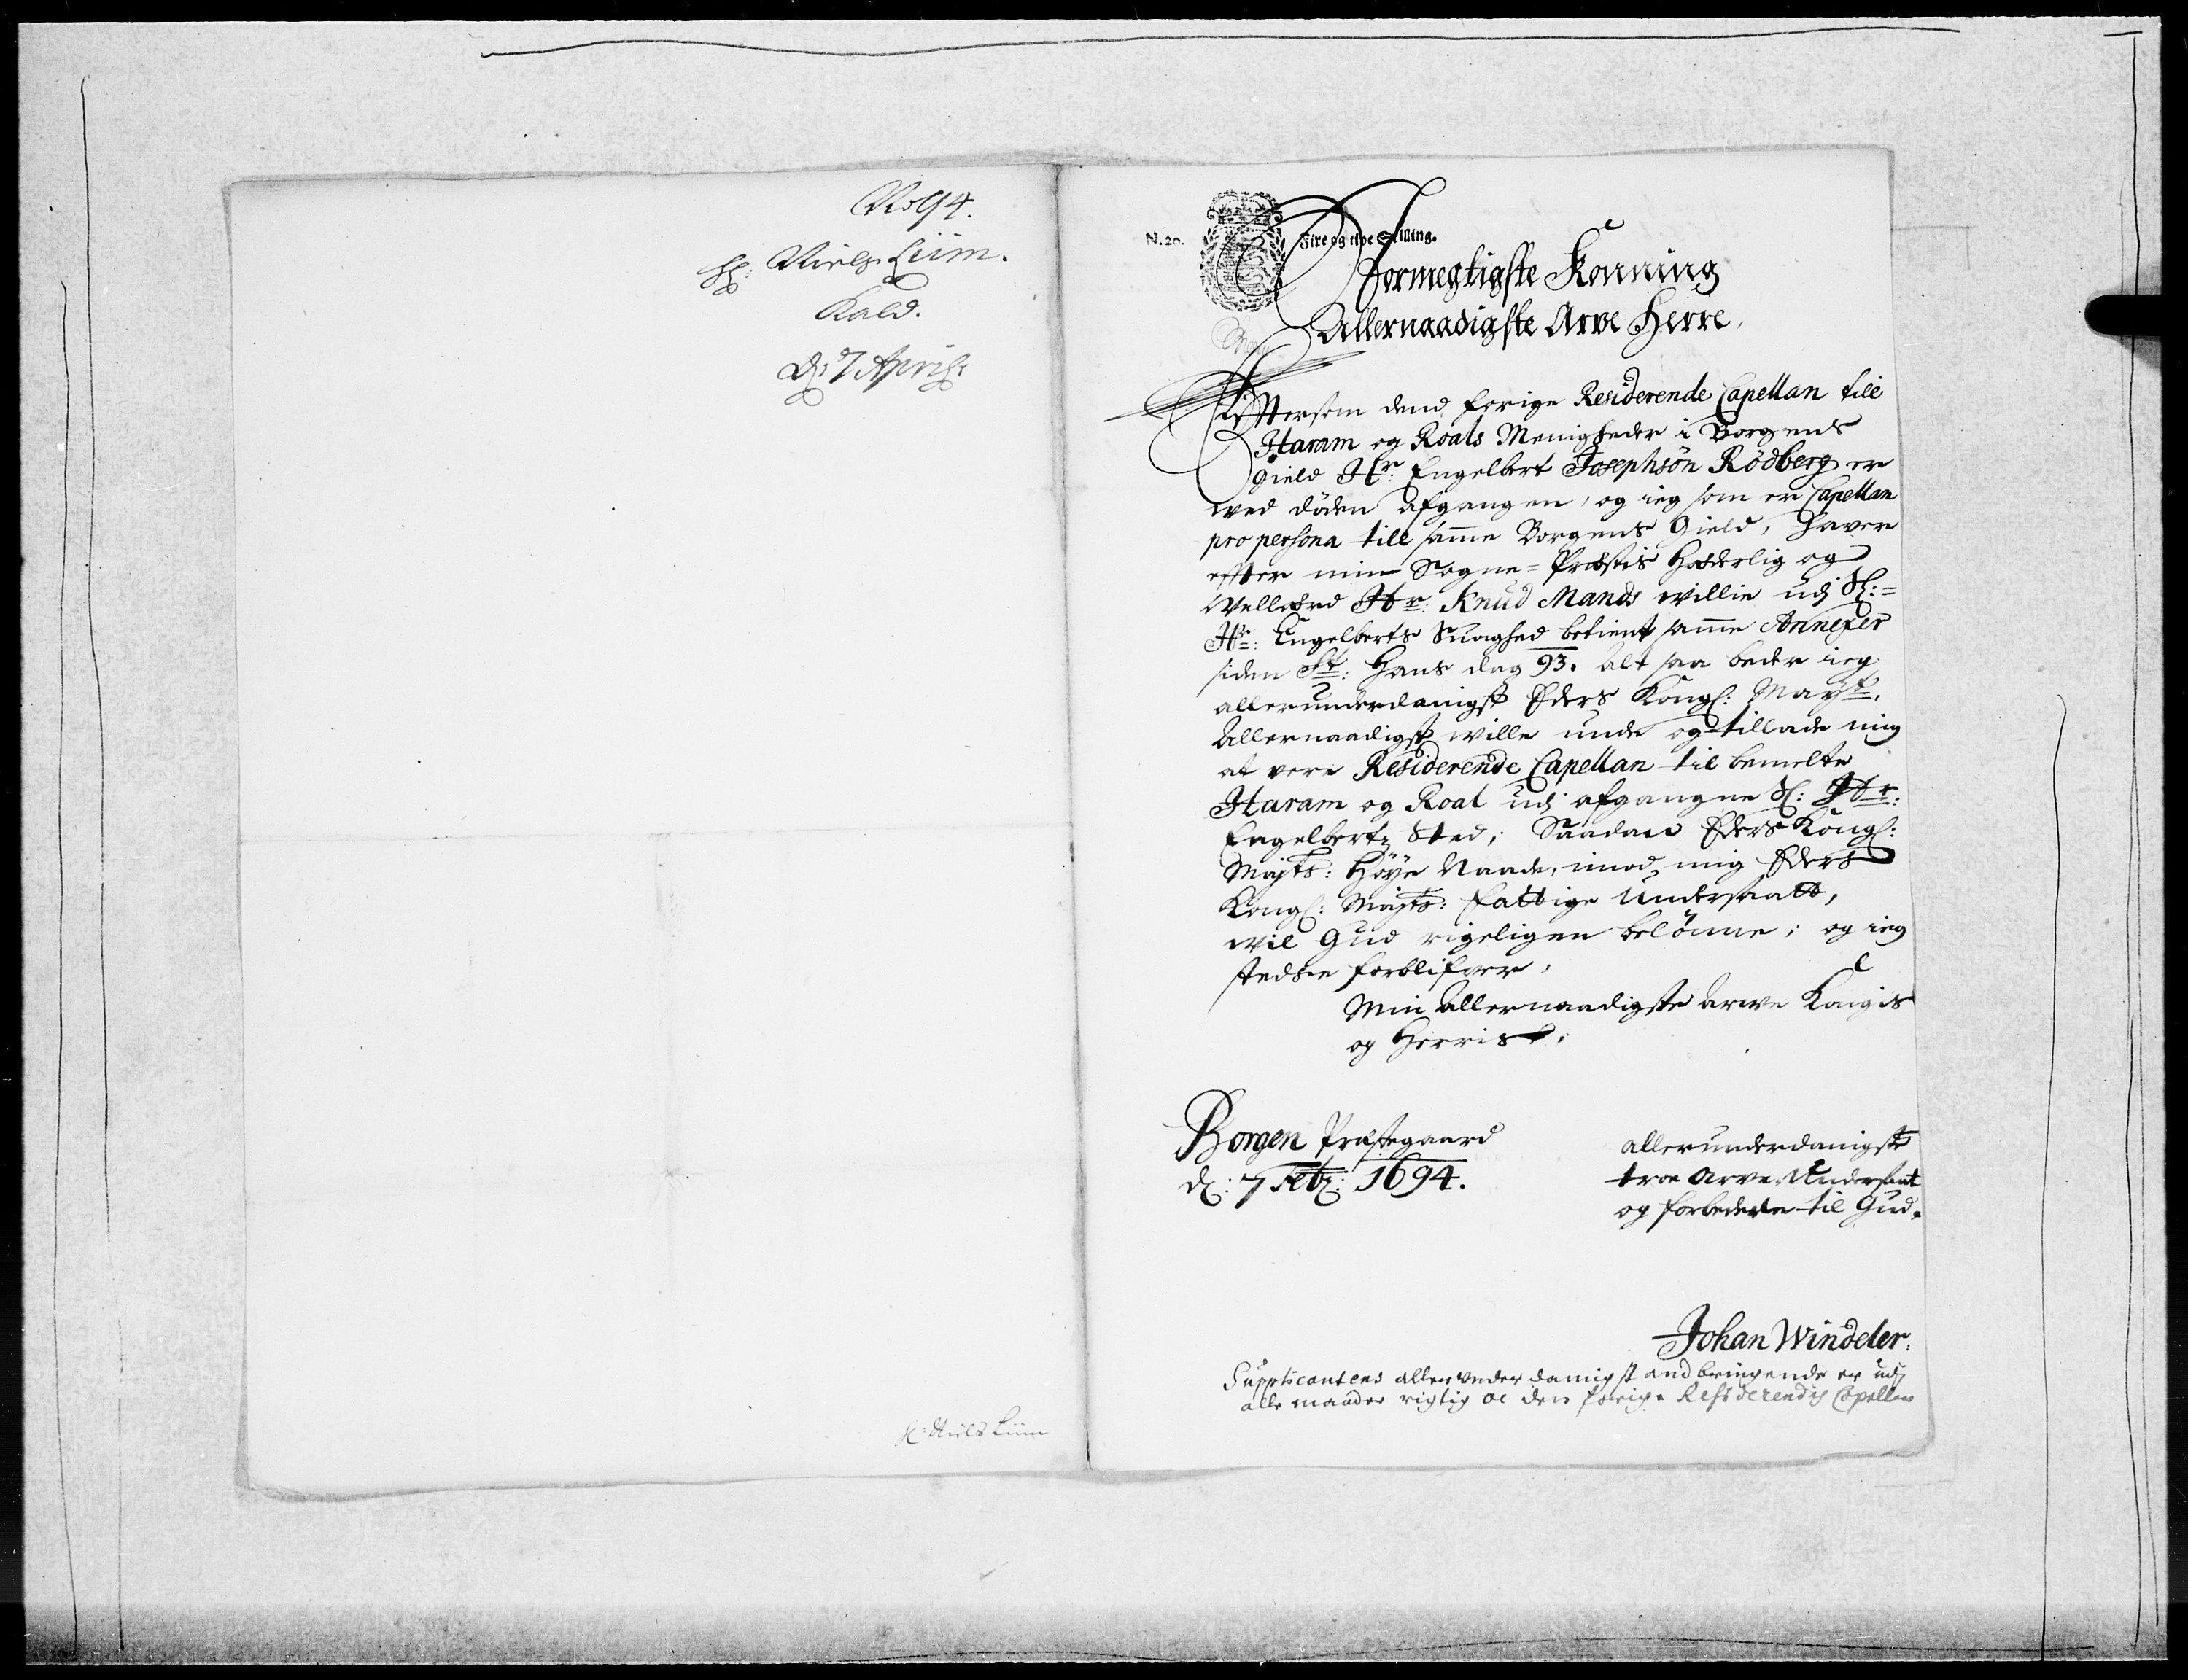 No 94.
H: Niels Liim.
Kald.
D: 7 April:
H: Niels Liim
N. 20.
Fire og tive Skilling.
Stormegtigste Konning
Allernaadigste Arve Herre,
Effttersom dend forige Residerende Capellan till
Haram og Roals Menigheder i Borgens
gield Hr: Engelbert Josephsön Rödberg er
wed döden afgangen, og ieg som er Capellan
pro persona till samme Borgens Gield, hawer
effter min Sogne=Præstis Hæderlig og
Wellærd Hr: Knud Mands willie udj Sl:=
Hr: Engelberts Suaghed betient samme Annexer
siden St: Hans dag 93. alt saa beder ieg
allerunderdanigst Eders Kongl: Mayt.
Allernaadigst wille unde og tillade mig
at vere Residerende Capellan til bemelte
Haram og Roal udj afgangne Sl: Hr:
Engelbertz Sted; Saadan Eders Kongl:
Mayts: Höye Naade, imod mig Eders
Kongl: Mayts: fattige Undersaatt,
wil Gud rigeligen belönne; og ieg
stedse forblifuer,
Min Allernaadigste Arve Kongis
og Herris;
Borgen Præstegaard
d: 7 Febr: 1694.
allerunderdanigste
troe Arve Undersaat
og forbedere til Gud.
Johan Windeler.
Supplicantens allerunderdanigst andbringende er udj
alle maader rigtig oc den forige Residerendis Capellan